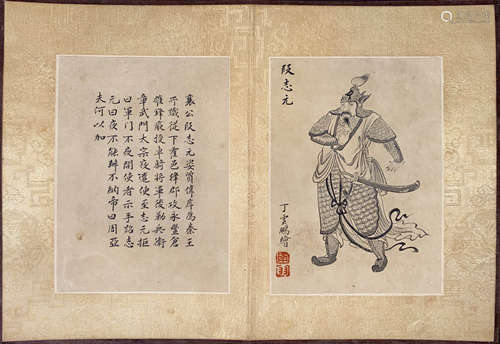 段志元
丁雲鵬繪
襄公段志元姿質偉岸為秦王
識從下霍邑郡攻永豐倉
鋒最授車騎將軍後勒兵衛
章武門太宗夜遣使至志元拒
曰軍門不夜開使者示手詔志
元曰夜不能辨不納帝曰周亞
夫何以加